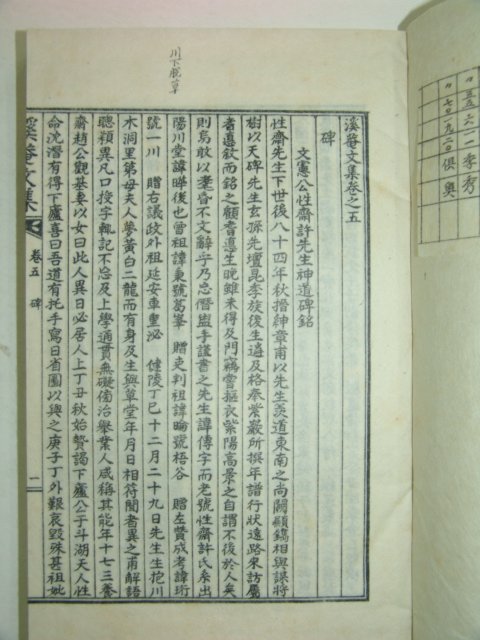 川下脫草
溪菴文集卷之五
碑
文憲公性齋許先生神道碑銘
性齋先生下世後八十四年秋搢紳章甫以先生羨道東南之尚闕顯鐫相與謀將
樹以天碑先生玄孫先壇昆季族後生遍及格奉紫巖所撰年譜行狀遠路來訪屬
者憲敍而銘之顧耆憲生晚雖未得及門竊嘗摳衣紫陽高景之自謂不後於人矣
則烏敢以耄昏不文辭字乃忘僭盥手謹書之先生諱傳字而老號性齋許氏系出
陽川堂諱曄後也曾祖諱秉號葛峯 贈吏判祖諱晩號梧谷 贈左贊成考諱珩
號一川 贈右議政外祖延安車重泌 健陵丁巳十二月二十九日先生生抱川
木洞里第母夫人夢黃白二龍而有身及生興草堂年月日相符聞者異之甫解語
聰穎異凡口授字輒記不忘及上學通貫無礙傍治擧業人咸稱其能年十七三養
齋趙公觀基妻以女曰此人異日必居人上丁丑秋始贄謁下廬公于斗湖天人性
命沈潛有得下廬喜曰吾道有托手寫日省圖以與之庚子丁外艱哀毁殊甚祖妣
溪菴文集
卷五
碑
一
〃 五五 六 一二 李秀
〃 七〇 一九 二〇 俱奧